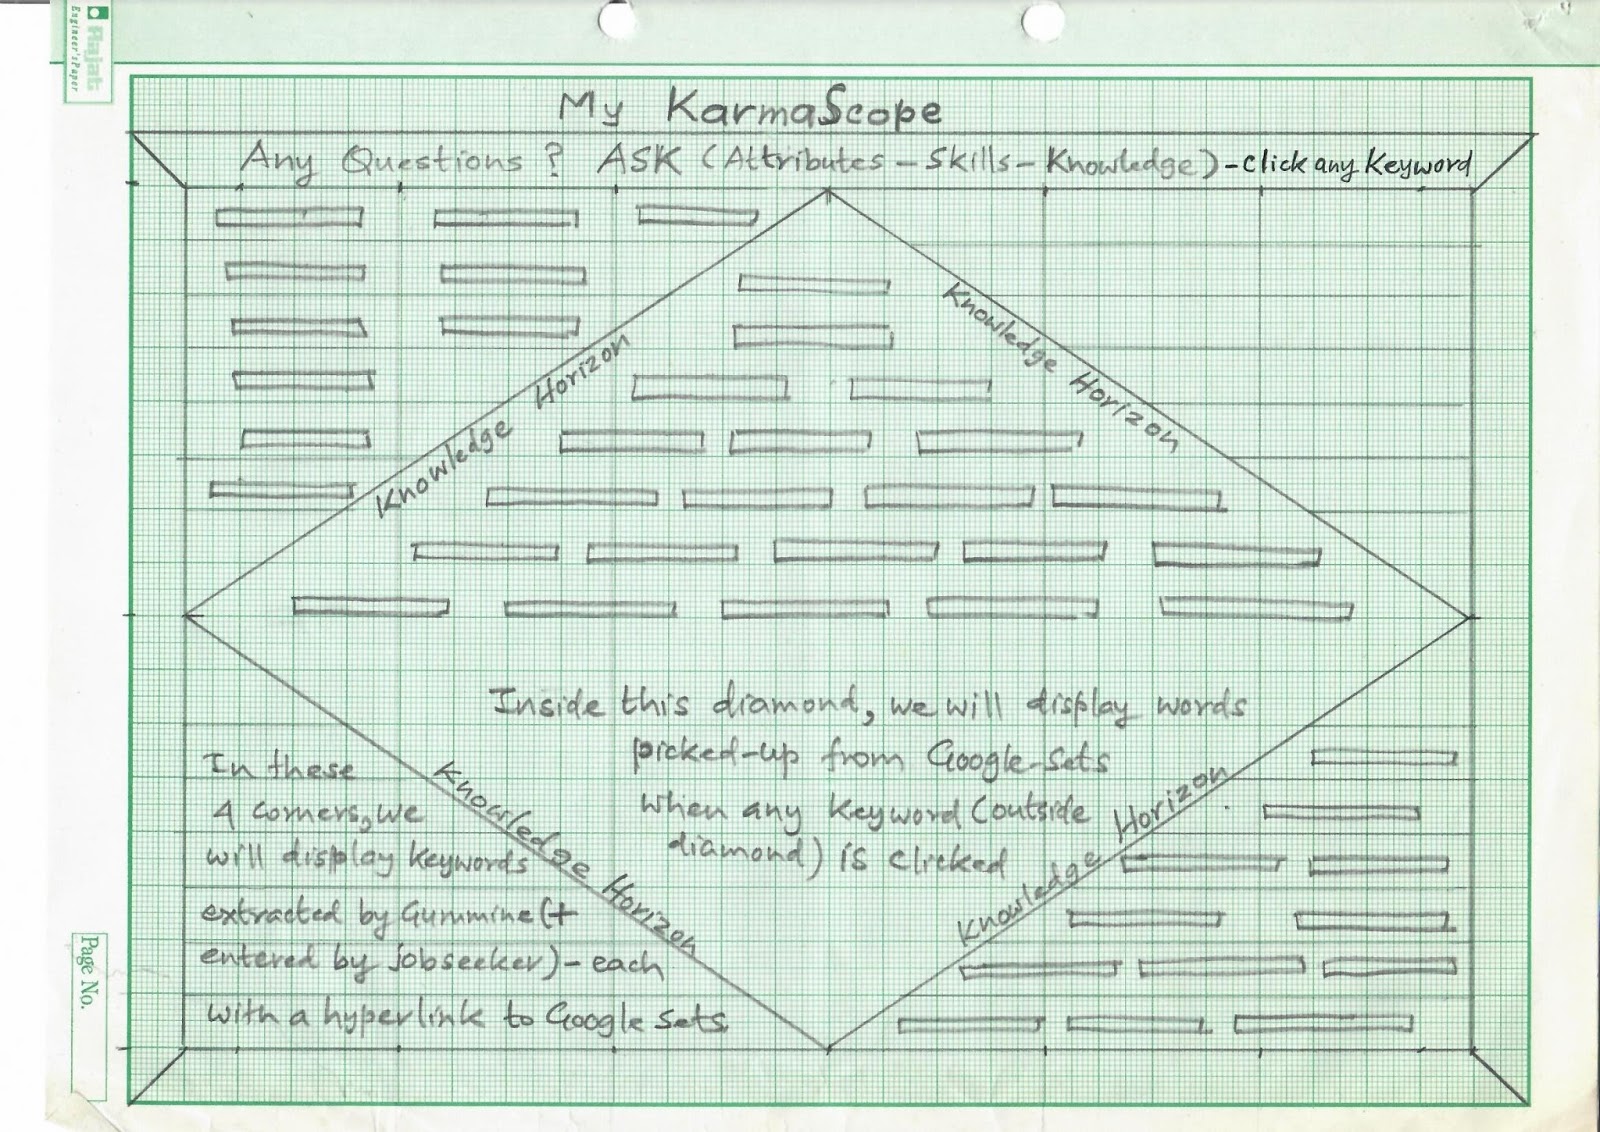 Rajat
Engineer's Paper
My KarmaScope
Any Questions ? ASK (Attributes - Skills - Knowledge) - click any Keyword
Knowledge Horizon
Knowledge Horizon
Inside this diamond, we will display words
picked-up from Google-Sets
when any Keyword (outside
diamond) is clicked
Knowledge Horizon
Knowledge Horizon
In these
4 corners, we
will display Keywords
extracted by Gummine (+
entered by jobseeker) - each
with a hyperlink to Google Sets
Page No.